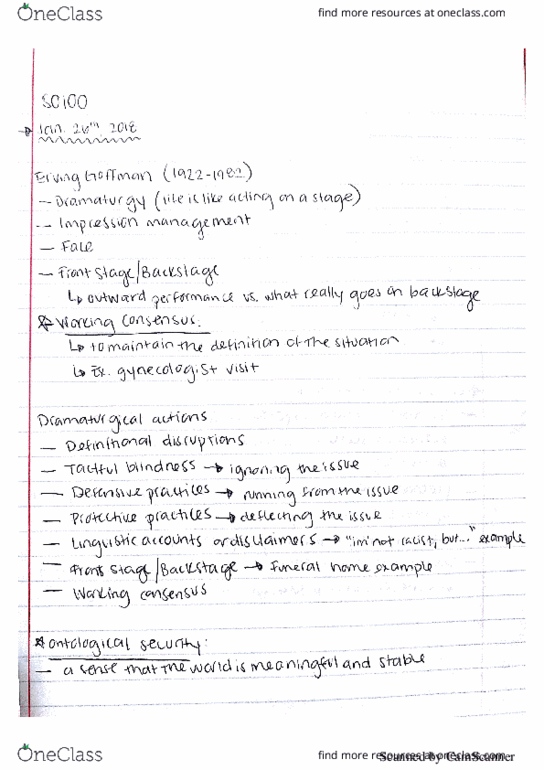 OneClass
find more resources at oneclass.com
SC100
→ Jan. 26th, 2018
Erving Goffman (1922-1982)
— Dramaturgy (life is like acting on a stage)
-- Impression management
— Face
— Front stage/Backstage
↳ outward performance vs. what really goes on backstage
☆ Working consensus:
↳ to maintain the definition of the situation
↳ Ex. gynecologist visit
Dramaturgical actions
— Definitional disruptions
— Tactful blindness → ignoring the issue
— Defensive practices → running from the issue
— Protective practices → deflecting the issue
— Linguistic accounts or disclaimers → "i'm not racist, but..." example
— Front stage/Backstage → funeral home example
— Working consensus
☆ ontological security:
— a sense that the world is meaningful and stable
OneClass
find more resources at oneclass.com
Scanned by CamScanner